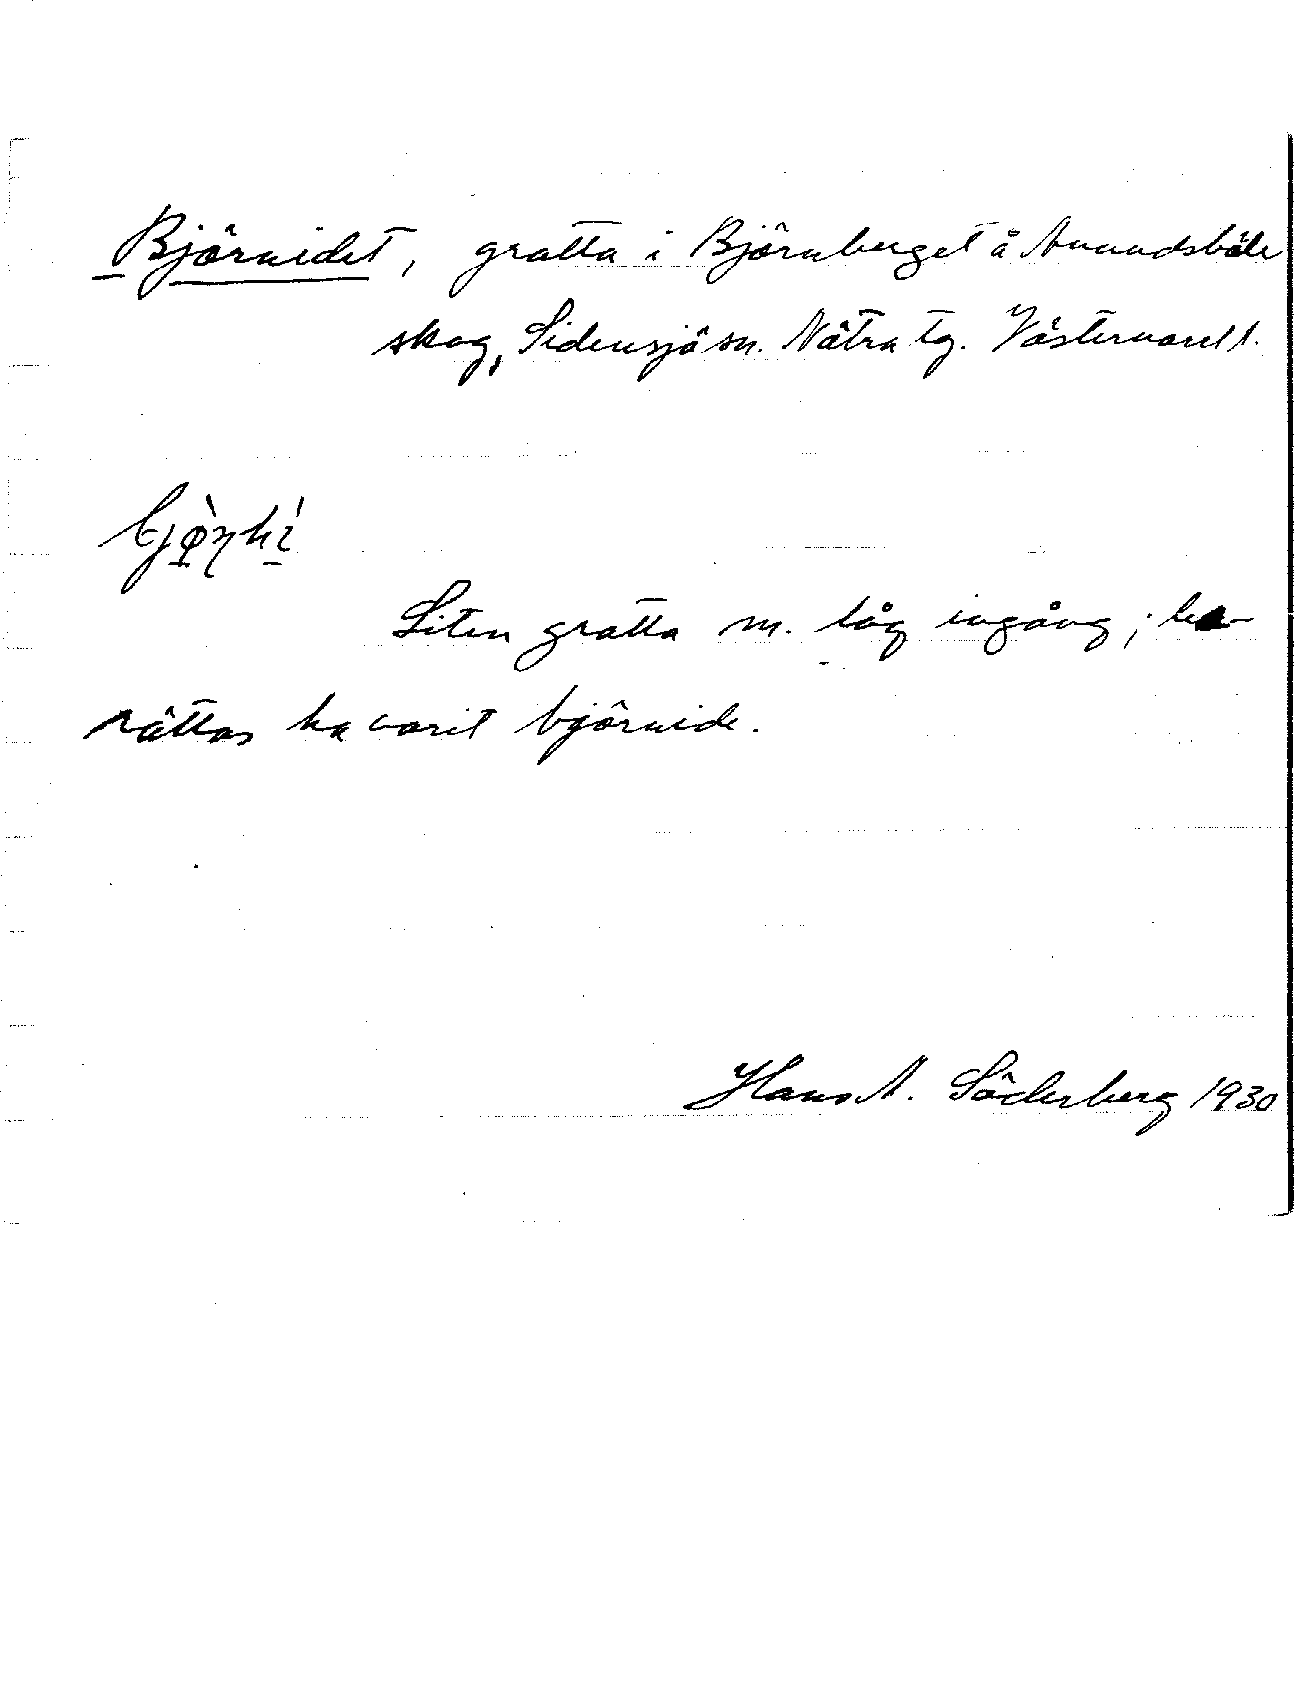 Björnidet, grotta i Björnberget å Anundsböle
skog, Sidensjö sn. Nätra tg. Västernorrl l.
Liten grotta m. låg ingång; be-
rättas ha varit björnide.
Hans A. Söderberg 1930